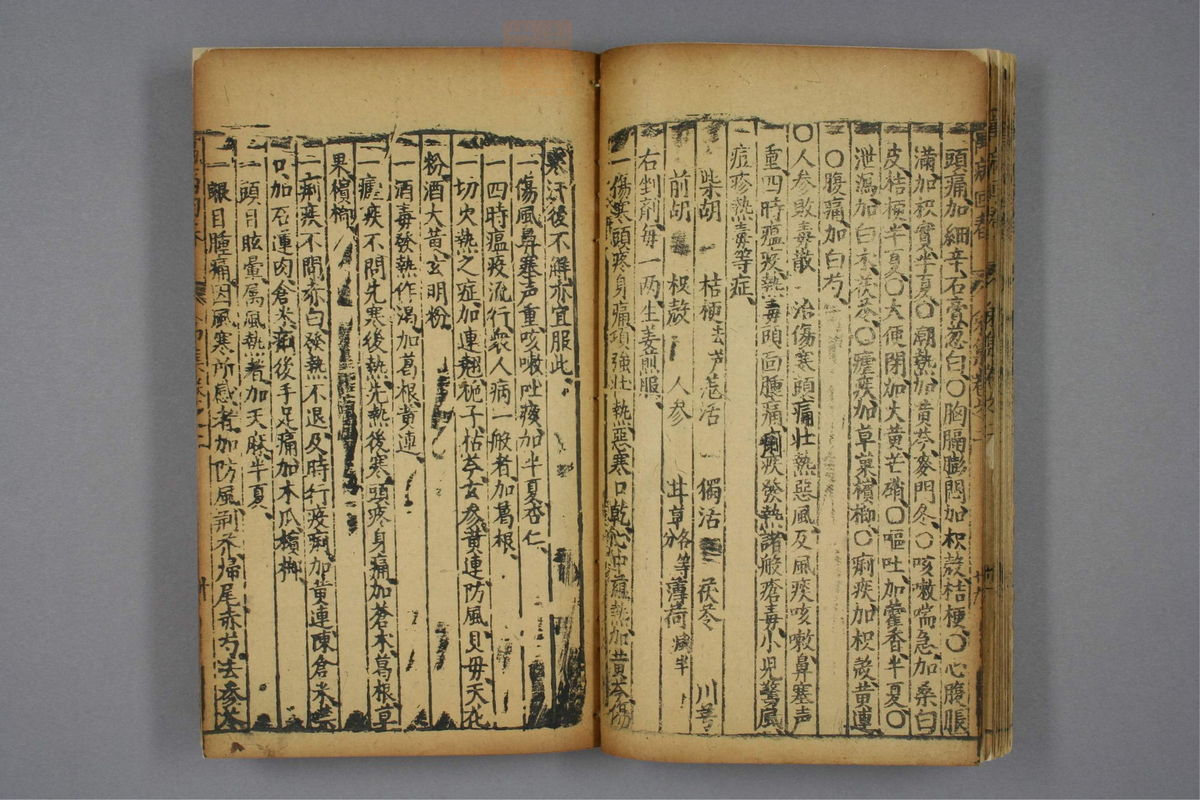 頭痛加細辛石膏葱白〇胸膈膨悶加枳殼桔梗〇心腹脹
滿加枳實半夏〇潮熱加黄芩麥門冬〇咳嗽喘急加桑白
皮桔梗半夏〇大便閉加大黄芒硝〇嘔吐加藿香半夏〇
泄瀉加白术茯苓〇瘧疾加草菓檳榔〇痢疾加枳殼黄連
〇腹痛加白芍
〇人参敗毒散 治傷寒頭痛壯熱惡風及風痰咳嗽鼻塞声
重四時瘟疫熱毒頭面腫痛痢疾發熱諸般瘡毒小児驚風
一痘疹熱毒等症
柴胡 桔梗去芦 羗活 獨活 茯苓 川芎
前胡 枳殼 人参 甘草各等分 薄荷減半
右剉剤每一两生姜煎服
一傷寒頭疼身痛項強壮熱惡寒口乾心中蘊熱加黄芩傷
寒汗後不解亦宜服此
一傷風鼻塞声重咳嗽吐痰加半夏杏仁
一四時瘟疫流行衆人病一般者加葛根
一切灾熱之症加連翹梔子枯芩玄参黄連防風貝母天花
粉酒大黄玄明粉
一酒毒發熱作渴加葛根黄連
一瘧疾不問先寒後熱先熱後寒頭疼身痛加蒼术葛根草
果檳榔
一痢疾不問赤白發熱不退及時行疫痢加黄連陳倉米禁
口加石蓮肉倉米痢後手足痛加木瓜檳榔
一頭目眩暈属風熱者加天麻半夏
一眼目腫痛因風寒所感者加防風荆芥掃尾赤芍去参苓